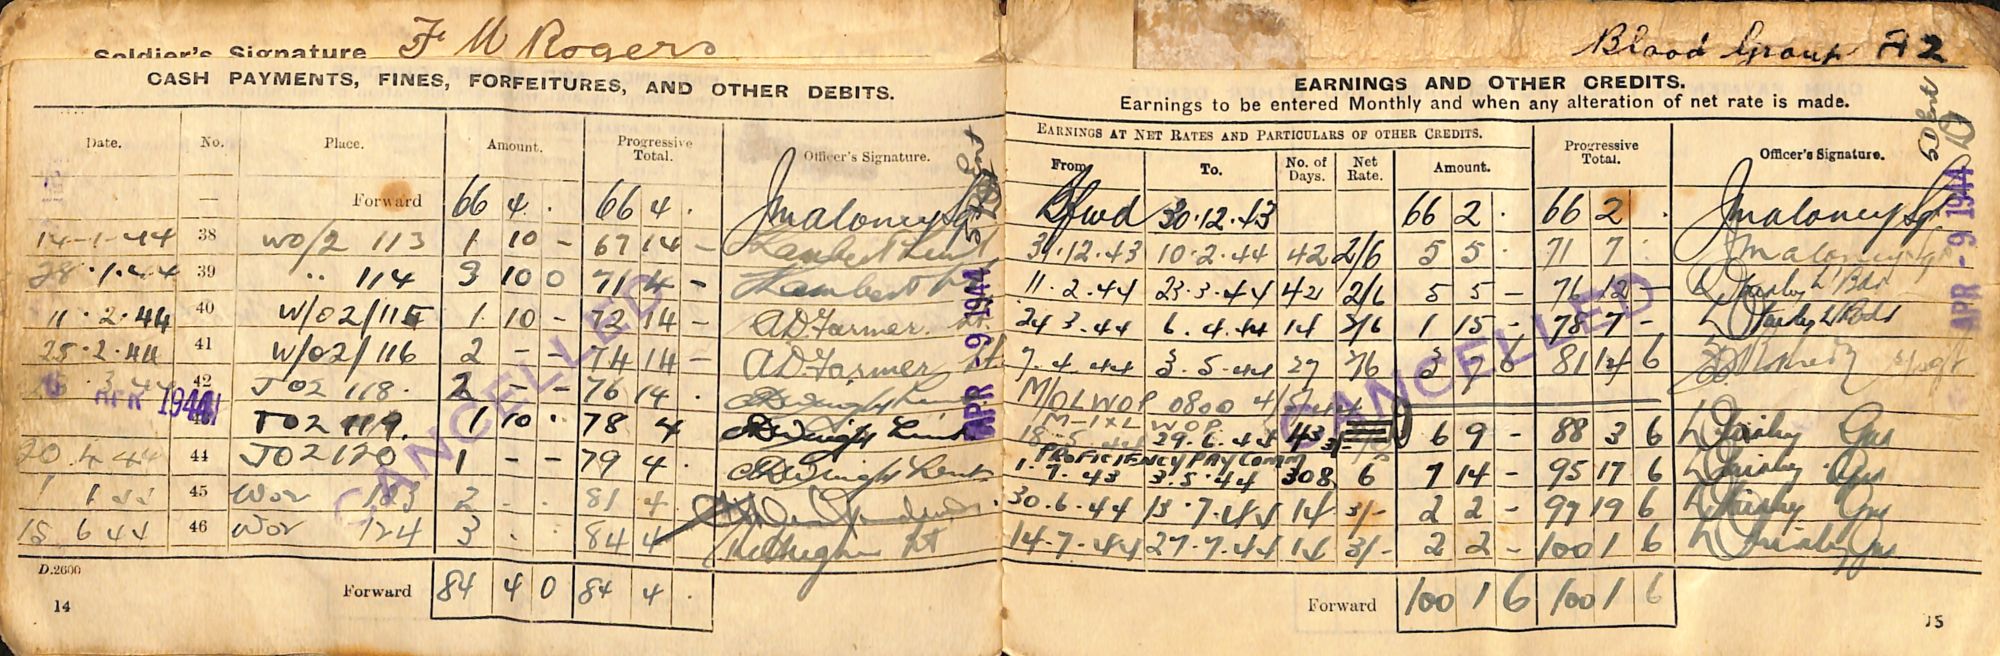 Soldier's Signature F M Rogers
CASH PAYMENTS, FINES, FORFEITURES, AND OTHER DEBITS.
Date. No. Place. Amount. Progressive Total. Officer's Signature.
— Forward 66 4 . 66 4 . J Maloney Sgt
14-1-44 38 WO/2 113 1 10 – 67 14 – Lambert Lieut
28.1.44 39 " 114 3 10 0 71 4 – Lambert
11.2.44 40 W/O2/115 1 10 – 72 14 – A D Farmer Lt.
25.2.44 41 W/O2/116 2 – – 74 14 – A D Farmer Lt
42 JO2 118. 2 – – 76 14 .
APR 1944 JO2 119. 1 10 . 78 4
20 4 44 44 JO2 120 1 – – 79 4 .
45 Wor 183 2 – . 81 4
15 6 44 46 Wor 124 3 . . 84 4 Lt
D.2600 Forward 84 4 0 84 4 .
14
CANCELLED
APR - 9 1944
Blood Group A2
EARNINGS AND OTHER CREDITS.
Earnings to be entered Monthly and when any alteration of net rate is made.
EARNINGS AT NET RATES AND PARTICULARS OF OTHER CREDITS.
From To. No. of Days. Net Rate. Amount. Progressive Total. Officer's Signature.
Bfwd 30.12.43 66 2 . 66 2 . J Maloney Sgt
31.12.43 10.2.44 42 2/6 5 5 . 71 7 . J Maloney Sgt
11.2.44 23.3.44 42 2/6 5 5 – 76 12 –
24 3.44 6.4.44 14 2/6 1 15 – 78 7 –
7.4.44 3.5.44 27 2/6 3 7 6 81 14 6
M/OLWOP 0800 4/5/44
M-1XL WOP
18-5.44 29.6.44 43 3/- 6 9 – 88 3 6
PROFICIENCY PAY COMM
1.7.43 3.5.44 308 6 7 14 – 95 17 6
30.6.44 13.7.44 14 3/- 2 2 – 97 19 6
14-7.44 27.7.44 14 3/- 2 2 – 100 1 6
Forward 100 1 6 100 1 6
15
CANCELLED
APR - 9 1944